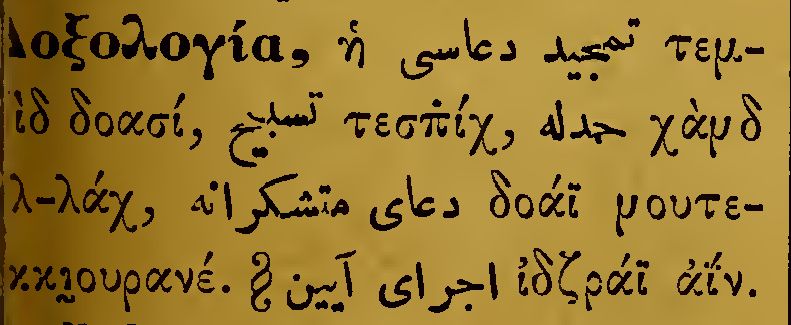 Δοξολογία, ἡ تمجيد دعاسی τεμ-
ὶδ δοασί, تسبيح τεσπίχ, حمدله χὰμδ
λ-λάχ, دعای متشكرانه δοάϊ μουτε-
κκιουρανέ. اجرای آيين ἰδζράϊ ἀΐν.